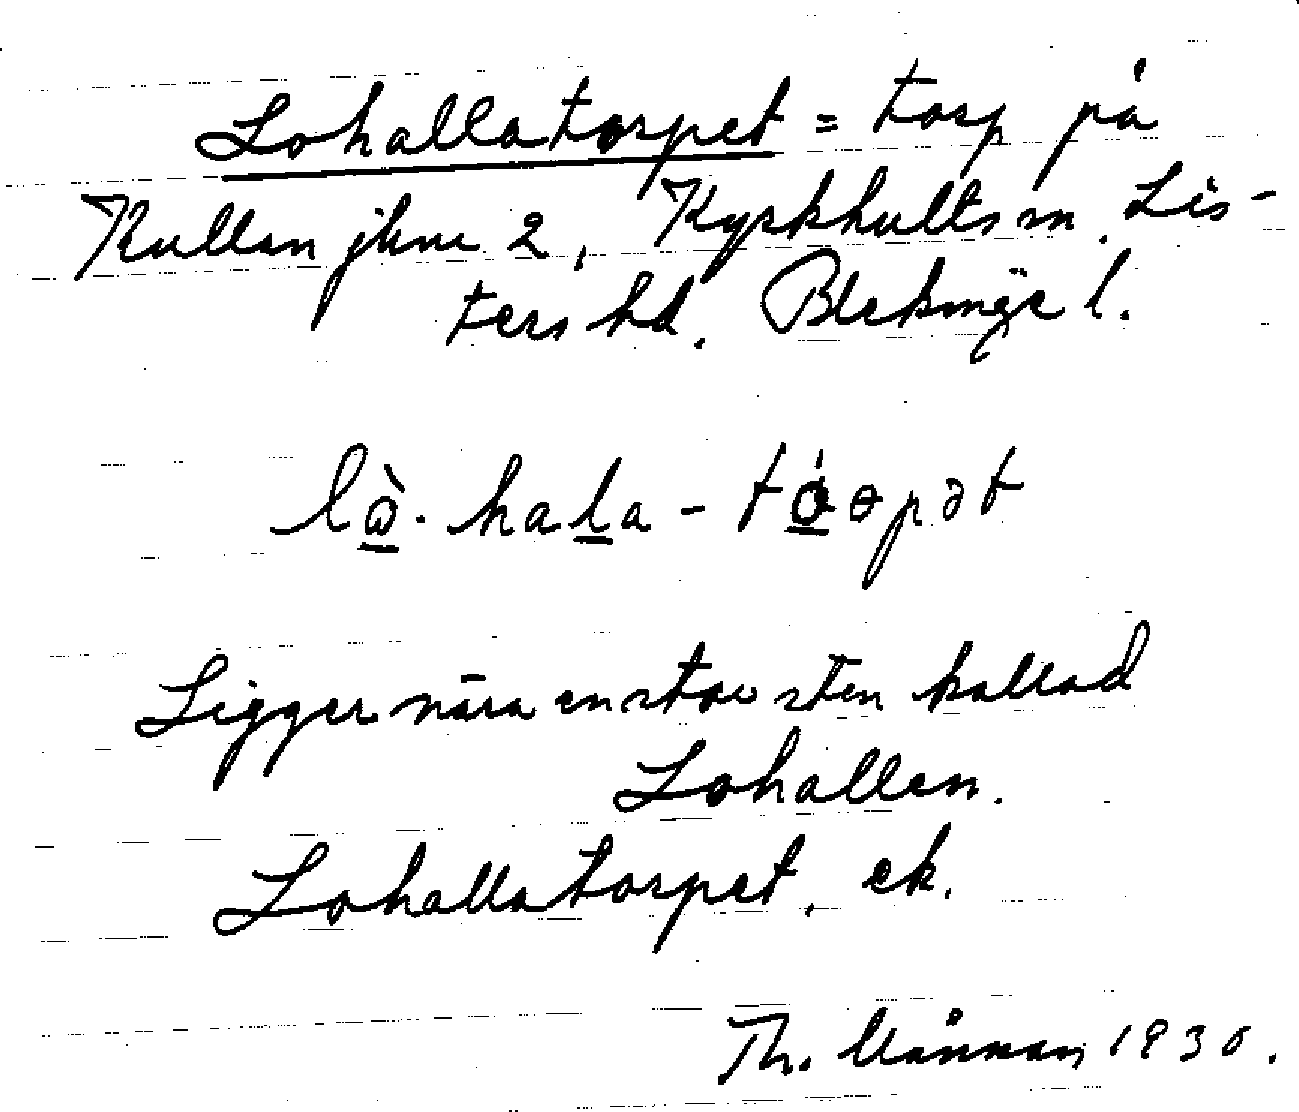 Lohallatorpet = torp på
Kullen jhem 2, Kyrkhults sn. Lis-
ters hd. Blekinge l.
lò̱.haḻa-tó̱ɵpət
Ligger nära en stor sten kallad
Lohallen.
Lohallatorpet, ek.
Th. 1930.